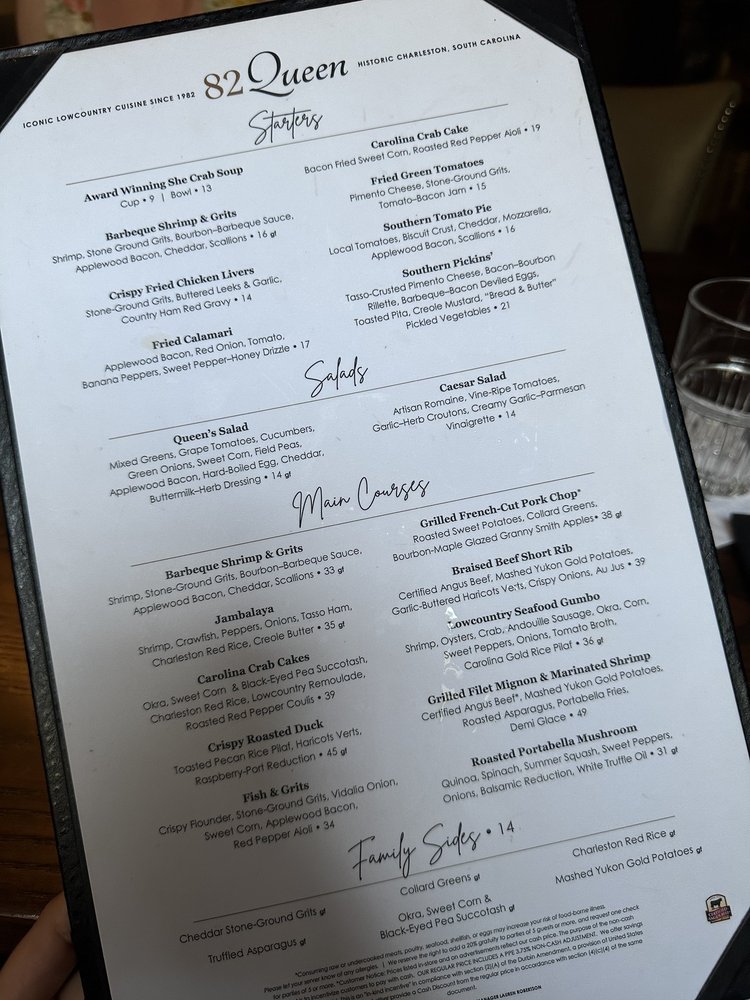 ICONIC LOWCOUNTRY CUISINE SINCE 1982
82 Queen
HISTORIC CHARLESTON, SOUTH CAROLINA
Starters
Award Winning She Crab Soup
Cup • 9 | Bowl • 13
Barbeque Shrimp & Grits
Shrimp, Stone Ground Grits, Bourbon-Barbeque Sauce,
Applewood Bacon, Cheddar, Scallions • 16 gf
Crispy Fried Chicken Livers
Stone-Ground Grits, Buttered Leeks & Garlic,
Country Ham Red Gravy • 14
Fried Calamari
Applewood Bacon, Red Onion, Tomato,
Banana Peppers, Sweet Pepper-Honey Drizzle • 17
Carolina Crab Cake
Bacon Fried Sweet Corn, Roasted Red Pepper Aioli • 19
Fried Green Tomatoes
Pimento Cheese, Stone-Ground Grits,
Tomato-Bacon Jam • 15
Southern Tomato Pie
Local Tomatoes, Biscuit Crust, Cheddar, Mozzarella,
Applewood Bacon, Scallions • 16
Southern Pickins'
Tasso-Crusted Pimento Cheese, Bacon-Bourbon
Rillette, Barbeque-Bacon Deviled Eggs,
Toasted Pita, Creole Mustard, "Bread & Butter"
Pickled Vegetables • 21
Salads
Queen's Salad
Mixed Greens, Grape Tomatoes, Cucumbers,
Green Onions, Sweet Corn, Field Peas,
Applewood Bacon, Hard-Boiled Egg, Cheddar,
Buttermilk-Herb Dressing • 14 gf
Caesar Salad
Artisan Romaine, Vine-Ripe Tomatoes,
Garlic-Herb Croutons, Creamy Garlic-Parmesan
Vinaigrette • 14
Main Courses
Barbeque Shrimp & Grits
Shrimp, Stone-Ground Grits, Bourbon-Barbeque Sauce,
Applewood Bacon, Cheddar, Scallions • 33 gf
Jambalaya
Shrimp, Crawfish, Peppers, Onions, Tasso Ham,
Charleston Red Rice, Creole Butter • 35 gf
Carolina Crab Cakes
Okra, Sweet Corn & Black-Eyed Pea Succotash,
Charleston Red Rice, Lowcountry Remoulade,
Roasted Red Pepper Coulis • 39
Crispy Roasted Duck
Toasted Pecan Rice Pilaf, Haricots Verts,
Raspberry-Port Reduction • 45 gf
Fish & Grits
Crispy Flounder, Stone-Ground Grits, Vidalia Onion,
Sweet Corn, Applewood Bacon,
Red Pepper Aioli • 34
Grilled French-Cut Pork Chop*
Roasted Sweet Potatoes, Collard Greens,
Bourbon-Maple Glazed Granny Smith Apples• 38 gf
Braised Beef Short Rib
Certified Angus Beef, Mashed Yukon Gold Potatoes,
Garlic-Buttered Haricots Verts, Crispy Onions, Au Jus • 39
Lowcountry Seafood Gumbo
Shrimp, Oysters, Crab, Andouille Sausage, Okra, Corn,
Sweet Peppers, Onions, Tomato Broth,
Carolina Gold Rice Pilaf • 36 gf
Grilled Filet Mignon & Marinated Shrimp
Certified Angus Beef*, Mashed Yukon Gold Potatoes,
Roasted Asparagus, Portabella Fries,
Demi Glace • 49
Roasted Portabella Mushroom
Quinoa, Spinach, Summer Squash, Sweet Peppers,
Onions, Balsamic Reduction, White Truffle Oil • 31 gf
Family Sides • 14
Cheddar Stone-Ground Grits gf
Truffled Asparagus gf
Collard Greens gf
Okra, Sweet Corn &
Black-Eyed Pea Succotash gf
Charleston Red Rice gf
Mashed Yukon Gold Potatoes gf
*Consuming raw or undercooked meats, poultry, seafood, shellfish, or eggs may increase your risk of food-borne illness.
Please let your server know of any allergies. | We reserve the right to add a 20% gratuity to parties of 5 guests or more, and request one check
for parties of 5 or more. *Customer Notice: Prices listed in-store and on advertisements reflect our cash price. The purpose of the non-cash
document.
MANAGER LAUREN ROBERTSON